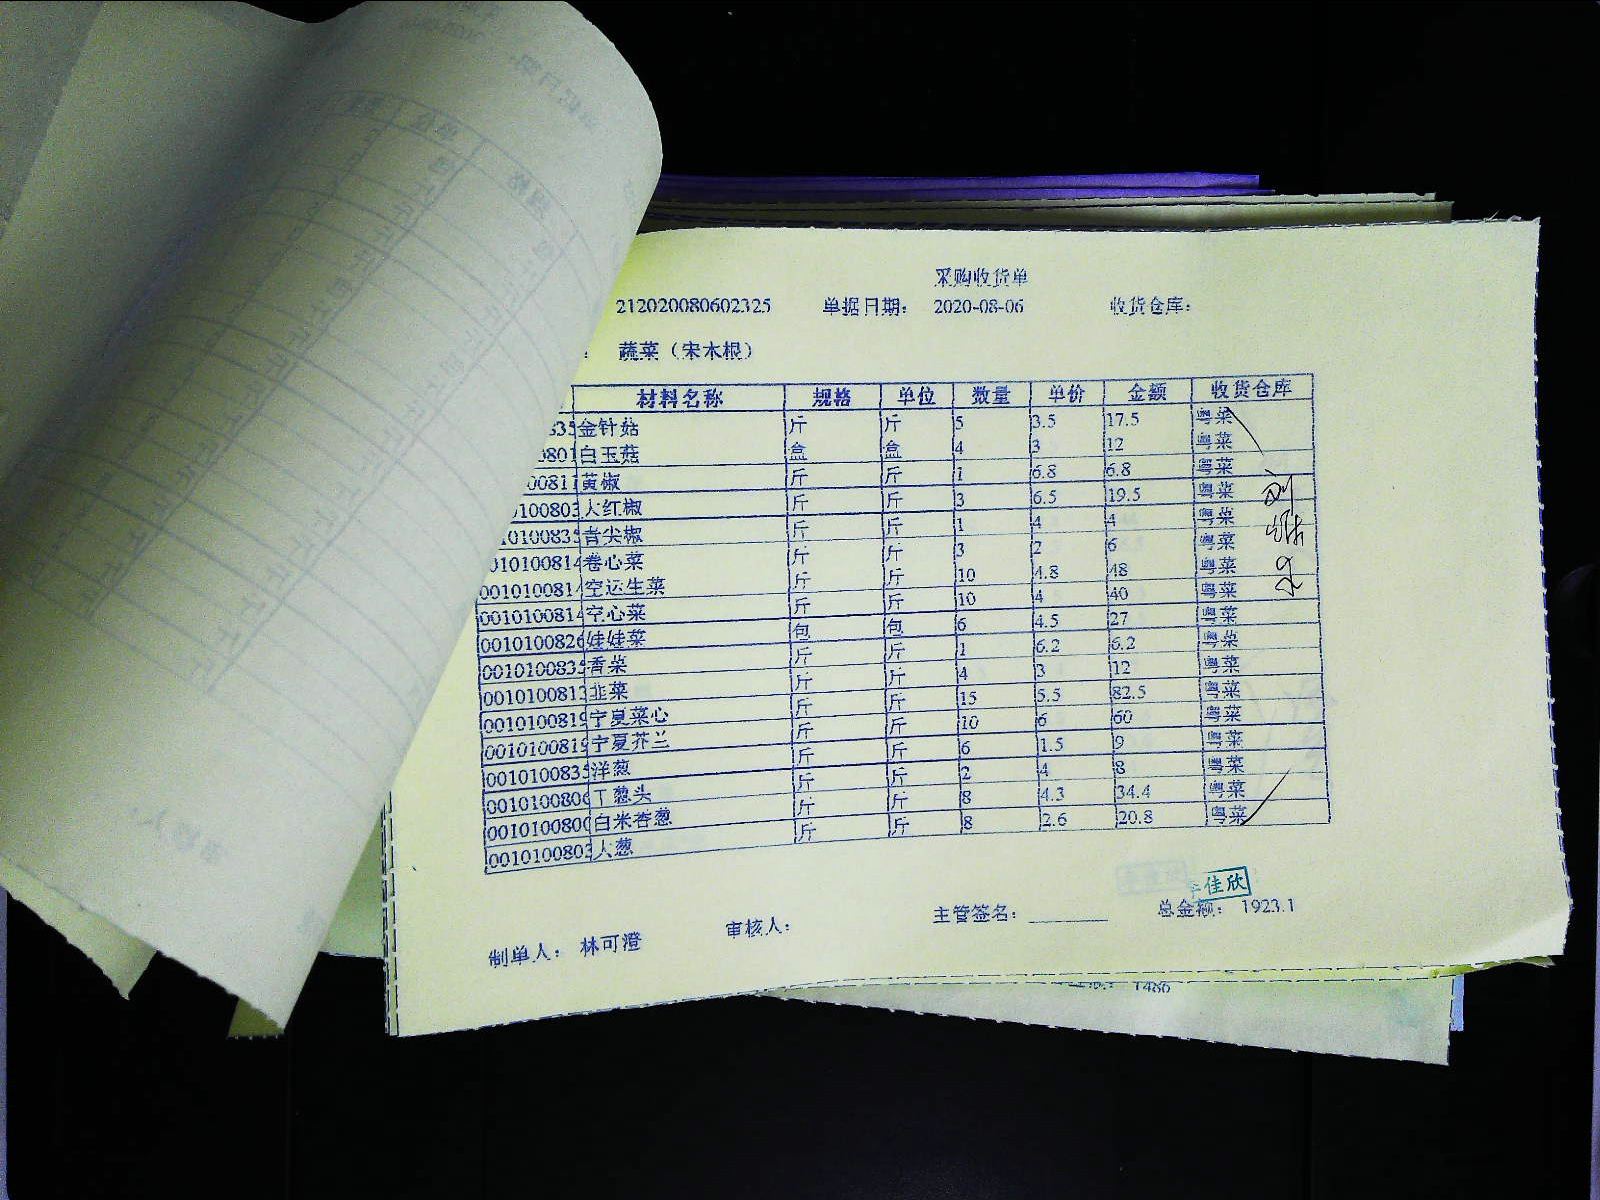 采购收货单
212020080602325 单据日期: 2020-08-06 收货仓库:
蔬菜（宋木根）
材料名称 规格 单位 数量 单价 金额 收货仓库
835 金针菇 斤 斤 5 3.5 17.5 粤菜
0801 白玉菇 盒 盒 4 3 12 粤菜
00811 黄椒 斤 斤 1 6.8 6.8 粤菜
0100803 大红椒 斤 斤 3 6.5 19.5 粤菜
010100835 青尖椒 斤 斤 1 4 4 粤菜
010100814 卷心菜 斤 斤 3 2 6 粤菜
0010100814 空运生菜 斤 斤 10 4.8 48 粤菜
0010100814 空心菜 斤 斤 10 4 40 粤菜
0010100826 娃娃菜 包 包 6 4.5 27 粤菜
0010100835 香菜 斤 斤 1 6.2 6.2 粤菜
0010100813 韭菜 斤 斤 4 3 12 粤菜
0010100819 宁夏菜心 斤 斤 15 5.5 82.5 粤菜
0010100819 宁夏芥兰 斤 斤 10 6 60 粤菜
0010100835 洋葱 斤 斤 6 1.5 9 粤菜
0010100806 干葱头 斤 斤 2 4 8 粤菜
0010100800 白米香葱 斤 斤 8 4.3 34.4 粤菜
0010100803 大葱 斤 斤 8 2.6 20.8 粤菜
佳欣
制单人: 林可澄 审核人: 主管签名: 总金额: 1923.1
1486